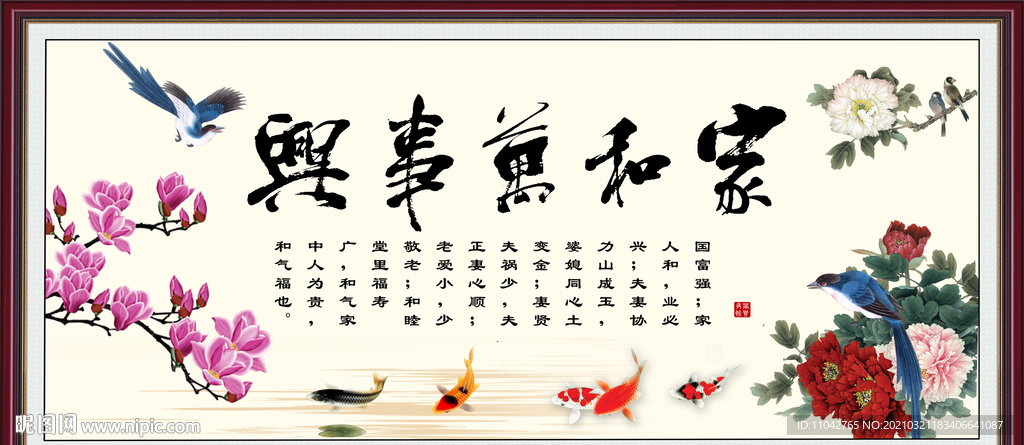 家和萬事興
国富强；家
人和，业必
兴；夫妻协
力山成玉，
婆媳同心土
变金；妻贤
夫祸少，夫
正妻心顺；
老爱小，少
敬老；和睦
堂里福寿
广，和气家
中人为贵，
和气福也。
昵图网 www.nipic.com
ID:11042765 NO:20210321183406641087